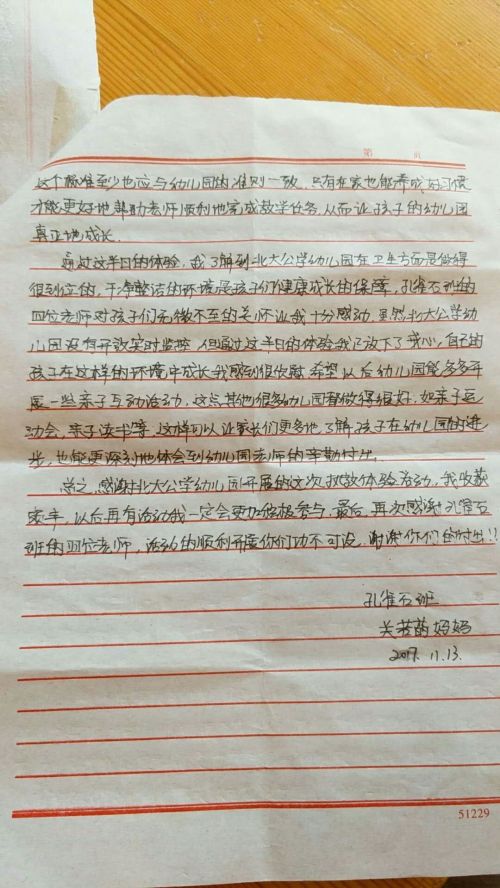 第 页
这个标准至少也应与幼儿园的准则一致。只有在家也能养成好习惯
才能更好地帮助老师顺利地完成教学任务,从而让孩子的幼儿园
真正地成长。
通过这半日的体验,我了解到北大公学幼儿园在卫生方面是做得
很到位的,干净整洁的环境是孩子们健康成长的保障,孔雀石班的
四位老师对孩子们无微不至的关怀让我十分感动。虽然北大公学幼
儿园没有开放实时监控,但通过这半日的体验我已放下了我心,自己的
孩子在这样的环境中成长我感到很欣慰。希望以后幼儿园能多多开
展一些亲子互动活动,这点其他很多幼儿园都做得很好,如亲子运
动会,亲子读书等,这样可以让家长们更多地了解孩子在幼儿园的进
步,也能更深刻地体会到幼儿园老师的辛勤付出。
总之,感谢北大公学幼儿园开展的这次开放体验活动,我收获
颇丰,以后再有活动我一定会更加积极参与。最后,再次感谢孔雀石
班的四位老师,活动的顺利开展你们功不可没,谢谢你们的付出!!
孔雀石班
关若 妈妈
2017. 11. 13.
51229